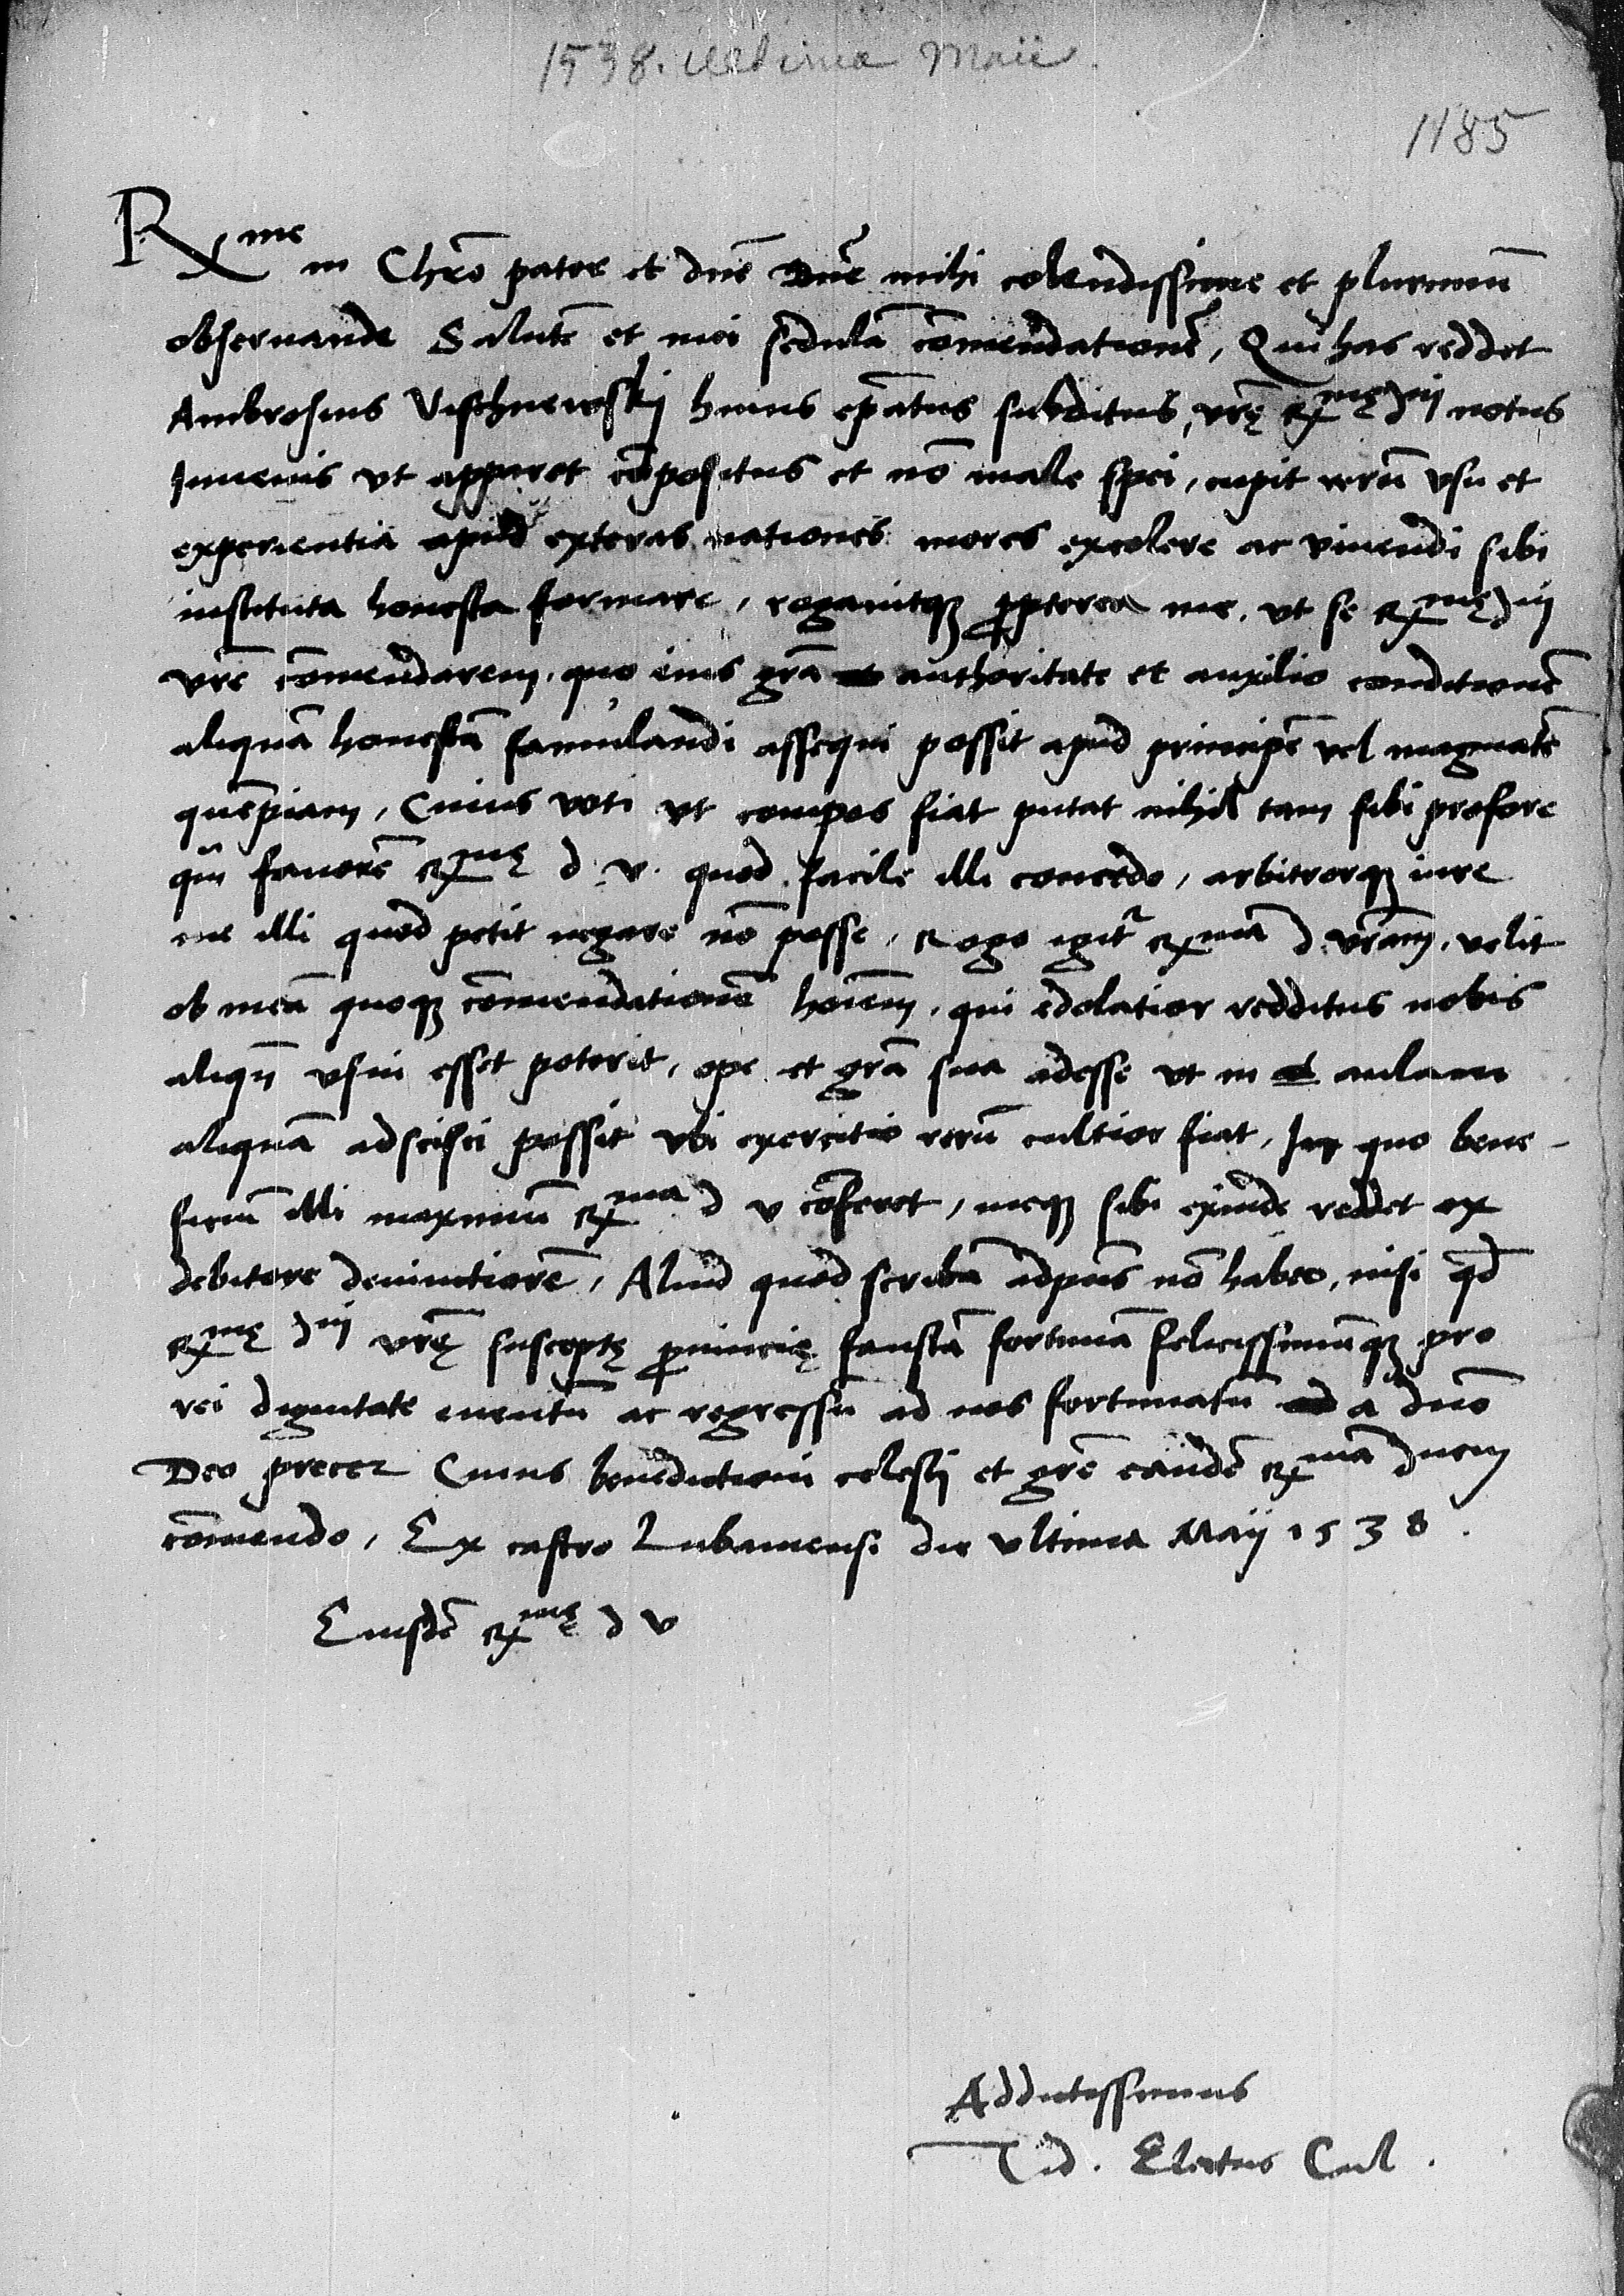 1538. Ultima Maii.
1185
Rxme in Chro pater et dne Dne mihi colendissime et plurimu
obseruande Salute et mei sedula comendatione, Qui has reddet
Ambrosius Vischnewskij huius epatus subditus, vre Rxme dnij notus
Juuenis vt apparet copositus et no male spei, cupit reru vsu et
experientia apud exteras nationes mores excolere ac viuendi sibi
instituta honesta formare, rogauitq propterea me. vt se Rxme dnij
vre comendarem. quo eius gra authoritate et auxilio conditione
aliqua honesta famulandi assequi possit apud principe vel magnate
quepiam, Cuius voti vt compos fiat putat nihil tam sibi profore
qm fauore Rxme d. v. quod facile illi concedo, arbitrorq iure
me illi quod petit negare no posse, Rogo igitr Rxma d. vram. velit
ob mea quoq comendatione hoiem, qui edolatior redditus nobis
aliqn vsui esset poterit, ope et gra sua adesse vt in aulam
aliqua adscisci possit vbi exercitio reru cultior fiat, In quo bene-
ficiu illi maximu Rxma d v coferet, meq sibi exinde reddet ex
debitore deuinctiore, Aliud quod scriba adpns no habeo, nisi qd
Rxme dnij vre suscepte prouincie fausta fortuna felicissimuq pro
rei dignitate euentu ac regressu ad nos fortunatu a dno
Deo precer Cuius benedictioni celesti et gre eande Rxma dnem
comendo, Ex castro Lubauiensi die vltima Maij 1538.
Eiusde Rxme d v
Addictissimus
Tid. Electus Cul.